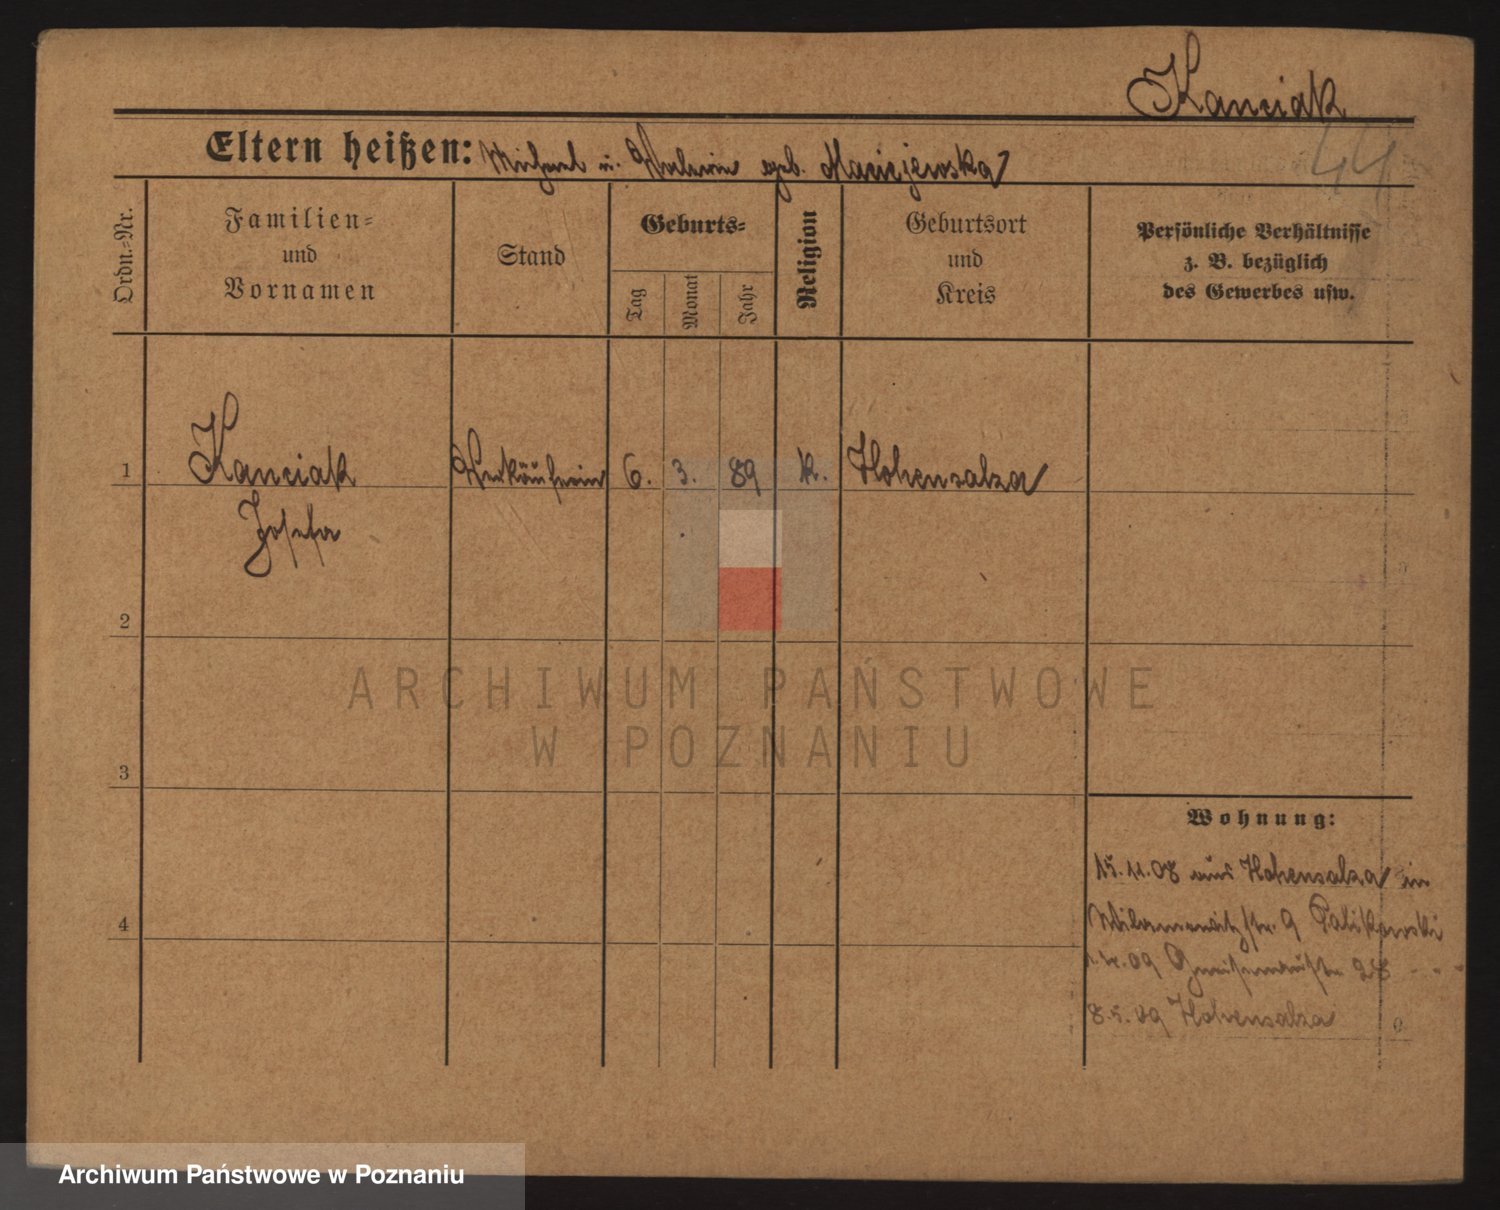 Kanciak
44
Eltern heißen: Michael u. geb. Maciejewska
Ordn.-Nr.
Familien-
und
Vornamen
Stand
Geburts-
Tag
Monat
Jahr
Religion
Geburtsort
und
Kreis
Persönliche Verhältnisse
z. B. bezüglich
des Gewerbes usw.
1 Kanciak Verkäuferin 6. 3. 89 k. Hohensalza
Josefa
2
ARCHIWUM PAŃSTWOWE
W POZNANIU
3
Wohnung:
15.11.08 aus Hohensalza in
4
Wilamowitzstr. 9 Palikowski
09 Gneisenaustr 28 - " -
8.5.09 Hohensalza
Archiwum Państwowe w Poznaniu